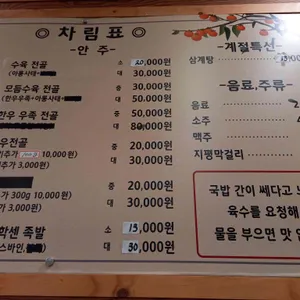 차림표
-안 주-
수육 전골 소 20,000원
(아롱사태+ 대 30,000원
모듬수육 전골 중 30,000원
(한우우족+아롱사태+ 대 50,000원
한우 우족 전골 중 50,000원
대 80,000원
우전골 중 30,000원
추가 10,000원) 대 50,000원
추가 3,000원)
중 20,000원
300g 10,000원) 대 30,000원
추가 3,000원)
학센 족발 소 15,000원
스바인, 대 30,000원
-계절특선-
삼계탕
-음료,주류-
음료
소주
맥주
지평막걸리
국밥 간이 쎄다고
육수를 요청해
물을 부으면 맛